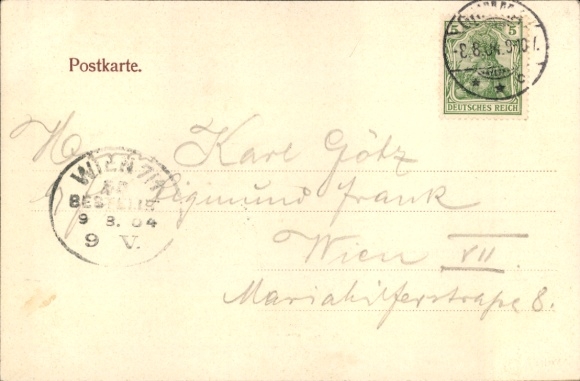 Postkarte.
5
DEUTSCHES REICH
-8.8.04.9-10V.
* * c
H. Karl Götz
Sigmund Frank
Wien VII
Mariahilferstraße 8.
WIEN 7/1
BESTELLT
9 8. 04
9 V.